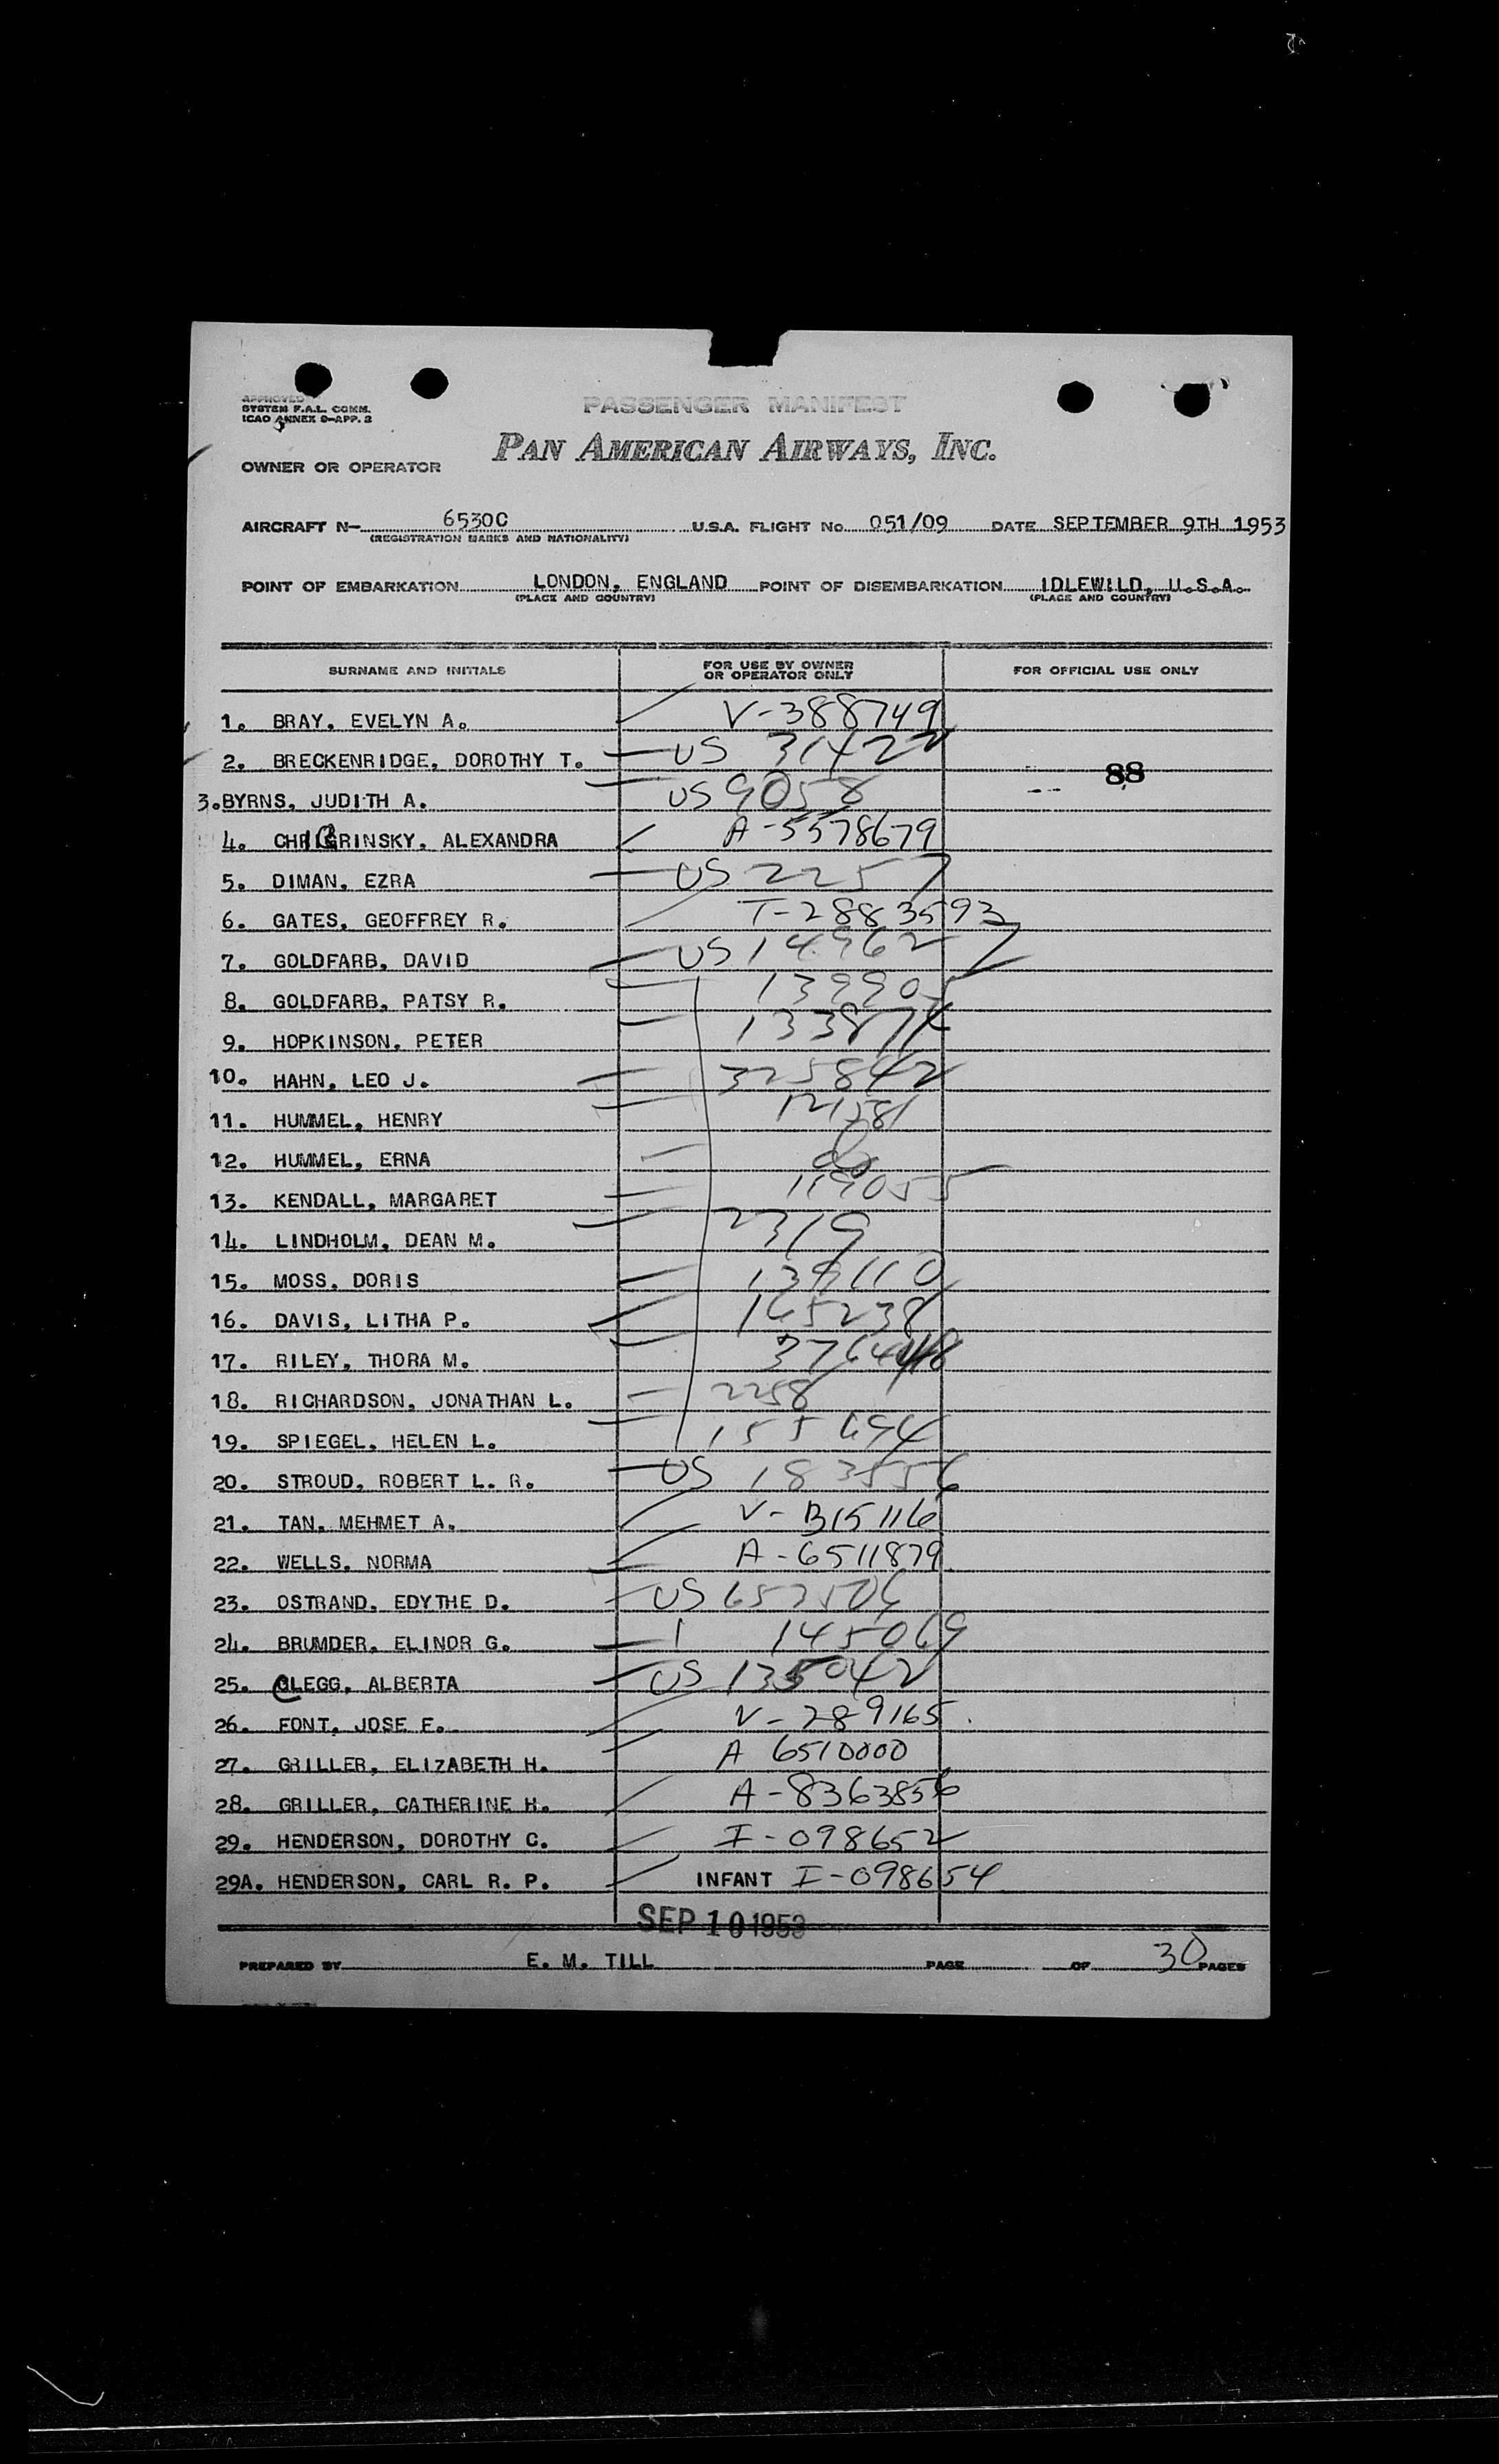 APPROVED
SYSTEM F.A.L. COMM.
ICAO ANNEX 9-APP. 3
PASSENGER MANIFEST
OWNER OR OPERATOR PAN AMERICAN AIRWAYS, INC.
AIRCRAFT N- 6530C U.S.A. FLIGHT No. 051/09 DATE SEPTEMBER 9TH 1953
(REGISTRATION MARKS AND NATIONALITY)
POINT OF EMBARKATION LONDON, ENGLAND POINT OF DISEMBARKATION IDLEWILD, U.S.A.
(PLACE AND COUNTRY) (PLACE AND COUNTRY)
SURNAME AND INITIALS FOR USE BY OWNER OR OPERATOR ONLY FOR OFFICIAL USE ONLY
1. BRAY, EVELYN A. V-388749
2. BRECKENRIDGE, DOROTHY T. US 31422
88
3. BYRNS, JUDITH A. US 9058
4. RINSKY, ALEXANDRA A-5578679
5. DIMAN, EZRA US 2257
6. GATES, GEOFFREY R. T-2883593
7. GOLDFARB, DAVID US 14962
8. GOLDFARB, PATSY R. 139905
9. HOPKINSON, PETER
10. HAHN, LEO J. 325842
11. HUMMEL, HENRY 121581
12. HUMMEL, ERNA do
13. KENDALL, MARGARET 119055
14. LINDHOLM, DEAN M. 2319
15. MOSS, DORIS 139110
16. DAVIS, LITHA P. 165238
17. RILEY, THORA M.
18. RICHARDSON, JONATHAN L. 2258
19. SPIEGEL, HELEN L. 155694
20. STROUD, ROBERT L. R. US 183556
21. TAN, MEHMET A. V-B15116
22. WELLS, NORMA A-6511879
23. OSTRAND, EDYTHE D. US 657506
24. BRUMDER, ELINOR G. 145069
25. CLEGG, ALBERTA US 135042
26. FONT, JOSE E. V-289165
27. GRILLER, ELIZABETH H. A 6510000
28. GRILLER, CATHERINE H. A-8363856
29. HENDERSON, DOROTHY C. I-098652
29A. HENDERSON, CARL R. P. INFANT I-098654
SEP 10 1953
PREPARED BY E. M. TILL PAGE OF 30 PAGES